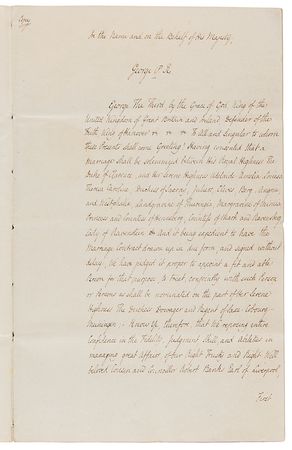 Copy
In the Name and on the Behalf of His Majesty,
George P. R.
George The Third by the Grace of God, King of the
United Kingdom of Great Britain and Ireland Defender of the
Faith King of Hanover &c &c &c To All and Singular to whom
These Presents shall come Greeting! Having consented that a
Marriage shall be solemnized between His Royal Highness The
Duke of Clarence, and Her Serene Highness Adelaide Amelia Louisa
Theresa Carolina, Duchess of Saxony, Juliers, Cleves, Berg, Angria
and Westphalia, Landgravine of Thuringia, Margravine of Misnia
Princess and Countess of Henneberg, Countess of Mark and Ravensberg
Lady of Ravenstein &c and it being expedient to have the
Marriage Contract drawn up in due form, and signed without
delay, We have judged it proper to appoint a fit and able
Person for that purpose, to treat, conjointly with such Person
or Persons as shall be nominated on the part of Her Serene
Highness The Duchess Dowager and Regent of Saxe Cobourg-
Meiningen; Know Ye therefore, that We reposing entire
Confidence in the Fidelity, Judgment, Skill, and Abilities in
managing great Affairs of Our Right Trusty and Right Well
beloved Cousin and Councillor Robert Banks Earl of Liverpool,
First